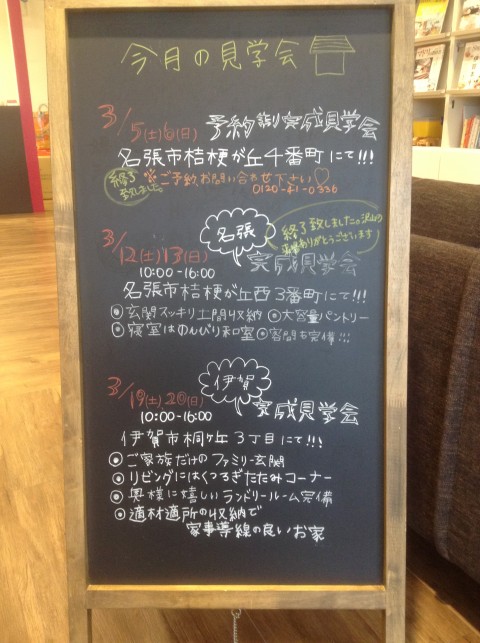 今月の見学会
3/5(土)6(日) 予約制完成見学会
名張市桔梗が丘4番町にて!!!
終了致しました。
※ご予約、お問い合わせ下さい♡
0120-41-0336
名張
終了致しました。沢山の
来場ありがとうございます
3/12(土)13(日) 完成見学会
10:00-16:00
名張市桔梗が丘西3番町にて!!!
◎玄関スッキリ土間収納 ◎大容量パントリー
◎寝室はのんびり和室 ◎客間も完備!!!
伊賀
3/19(土)20(日) 完成見学会
10:00-16:00
伊賀市桐ケ丘3丁目にて!!!
◎ご家族だけのファミリー玄関
◎リビングにはくつろぎたたみコーナー
◎奥様に嬉しいランドリールーム完備
◎適材適所の収納で
家事導線の良いお家